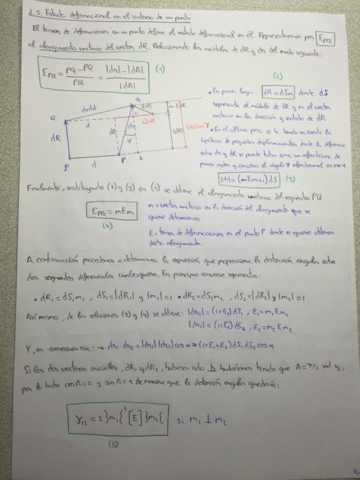 2.5. Estado deformacional en el entorno de un punto
El tensor de deformaciones en un punto define el estado deformacional en él. Representaremos por ε_PQ
al alargamiento unitario del vector dR. Relacionando los módulos de dR y dr1 del modo siguiente:
ε_PQ = (pq - PQ)/PQ = (|dr1| - |dR|)/|dR| (1)
(2)
• En primer lugar: dR = dS m donde dS
representa el módulo de dR y m el vector
unitario en la dirección y sentido de dR
• En el último paso, se ha tenido en cuenta la
hipótesis de pequeños desplazamientos donde la diferencia
entre dr y dR se puede tratar como un infinitésimo de
(3)
Finalmente, sustituyendo (2) y (3) en (1) se obtiene el alargamiento unitario del segmento PQ
ε_PQ = mEm
(4)
m = vector unitario en la dirección del alargamiento que se
quiere determinar
E = tensor de deformaciones en el punto P donde se quiere obtener
dicho alargamiento.
A continuación procedemos a determinar la expresión que proporciona la distorsión angular entre
dos segmentos diferenciales cualesquiera. En principio conviene representar:
• dR1 = dS1 m1 , dS1 = |dR1| y |m1| = 1 • dR2 = dS2 m2 , dS2 = |dR2| y |m2| = 1
Así mismo, de las relaciones (3) y (4) se obtiene: |dr1| = (1+ε1) dS1 , ε1 = m1 E m1
|dr2| = (1+ε2) dS2 , ε2 = m2 E m2
Y, en consecuencia: → dr1 dr2 = |dr1| |dr2| cos α ≈ (1+ε1+ε2) dS1 dS2 cos α
Si los dos vectores iniciales, dR1 y dR2, hubieran sido ⊥ tendríamos que A = π/2 rad y,
por lo tanto cos A = 0 y sin A = 1 de manera que la distorsión angular quedaría:
γ12 = 2 }m1{ᵗ [E] }m2{ si m1 ⊥ m2
(5)